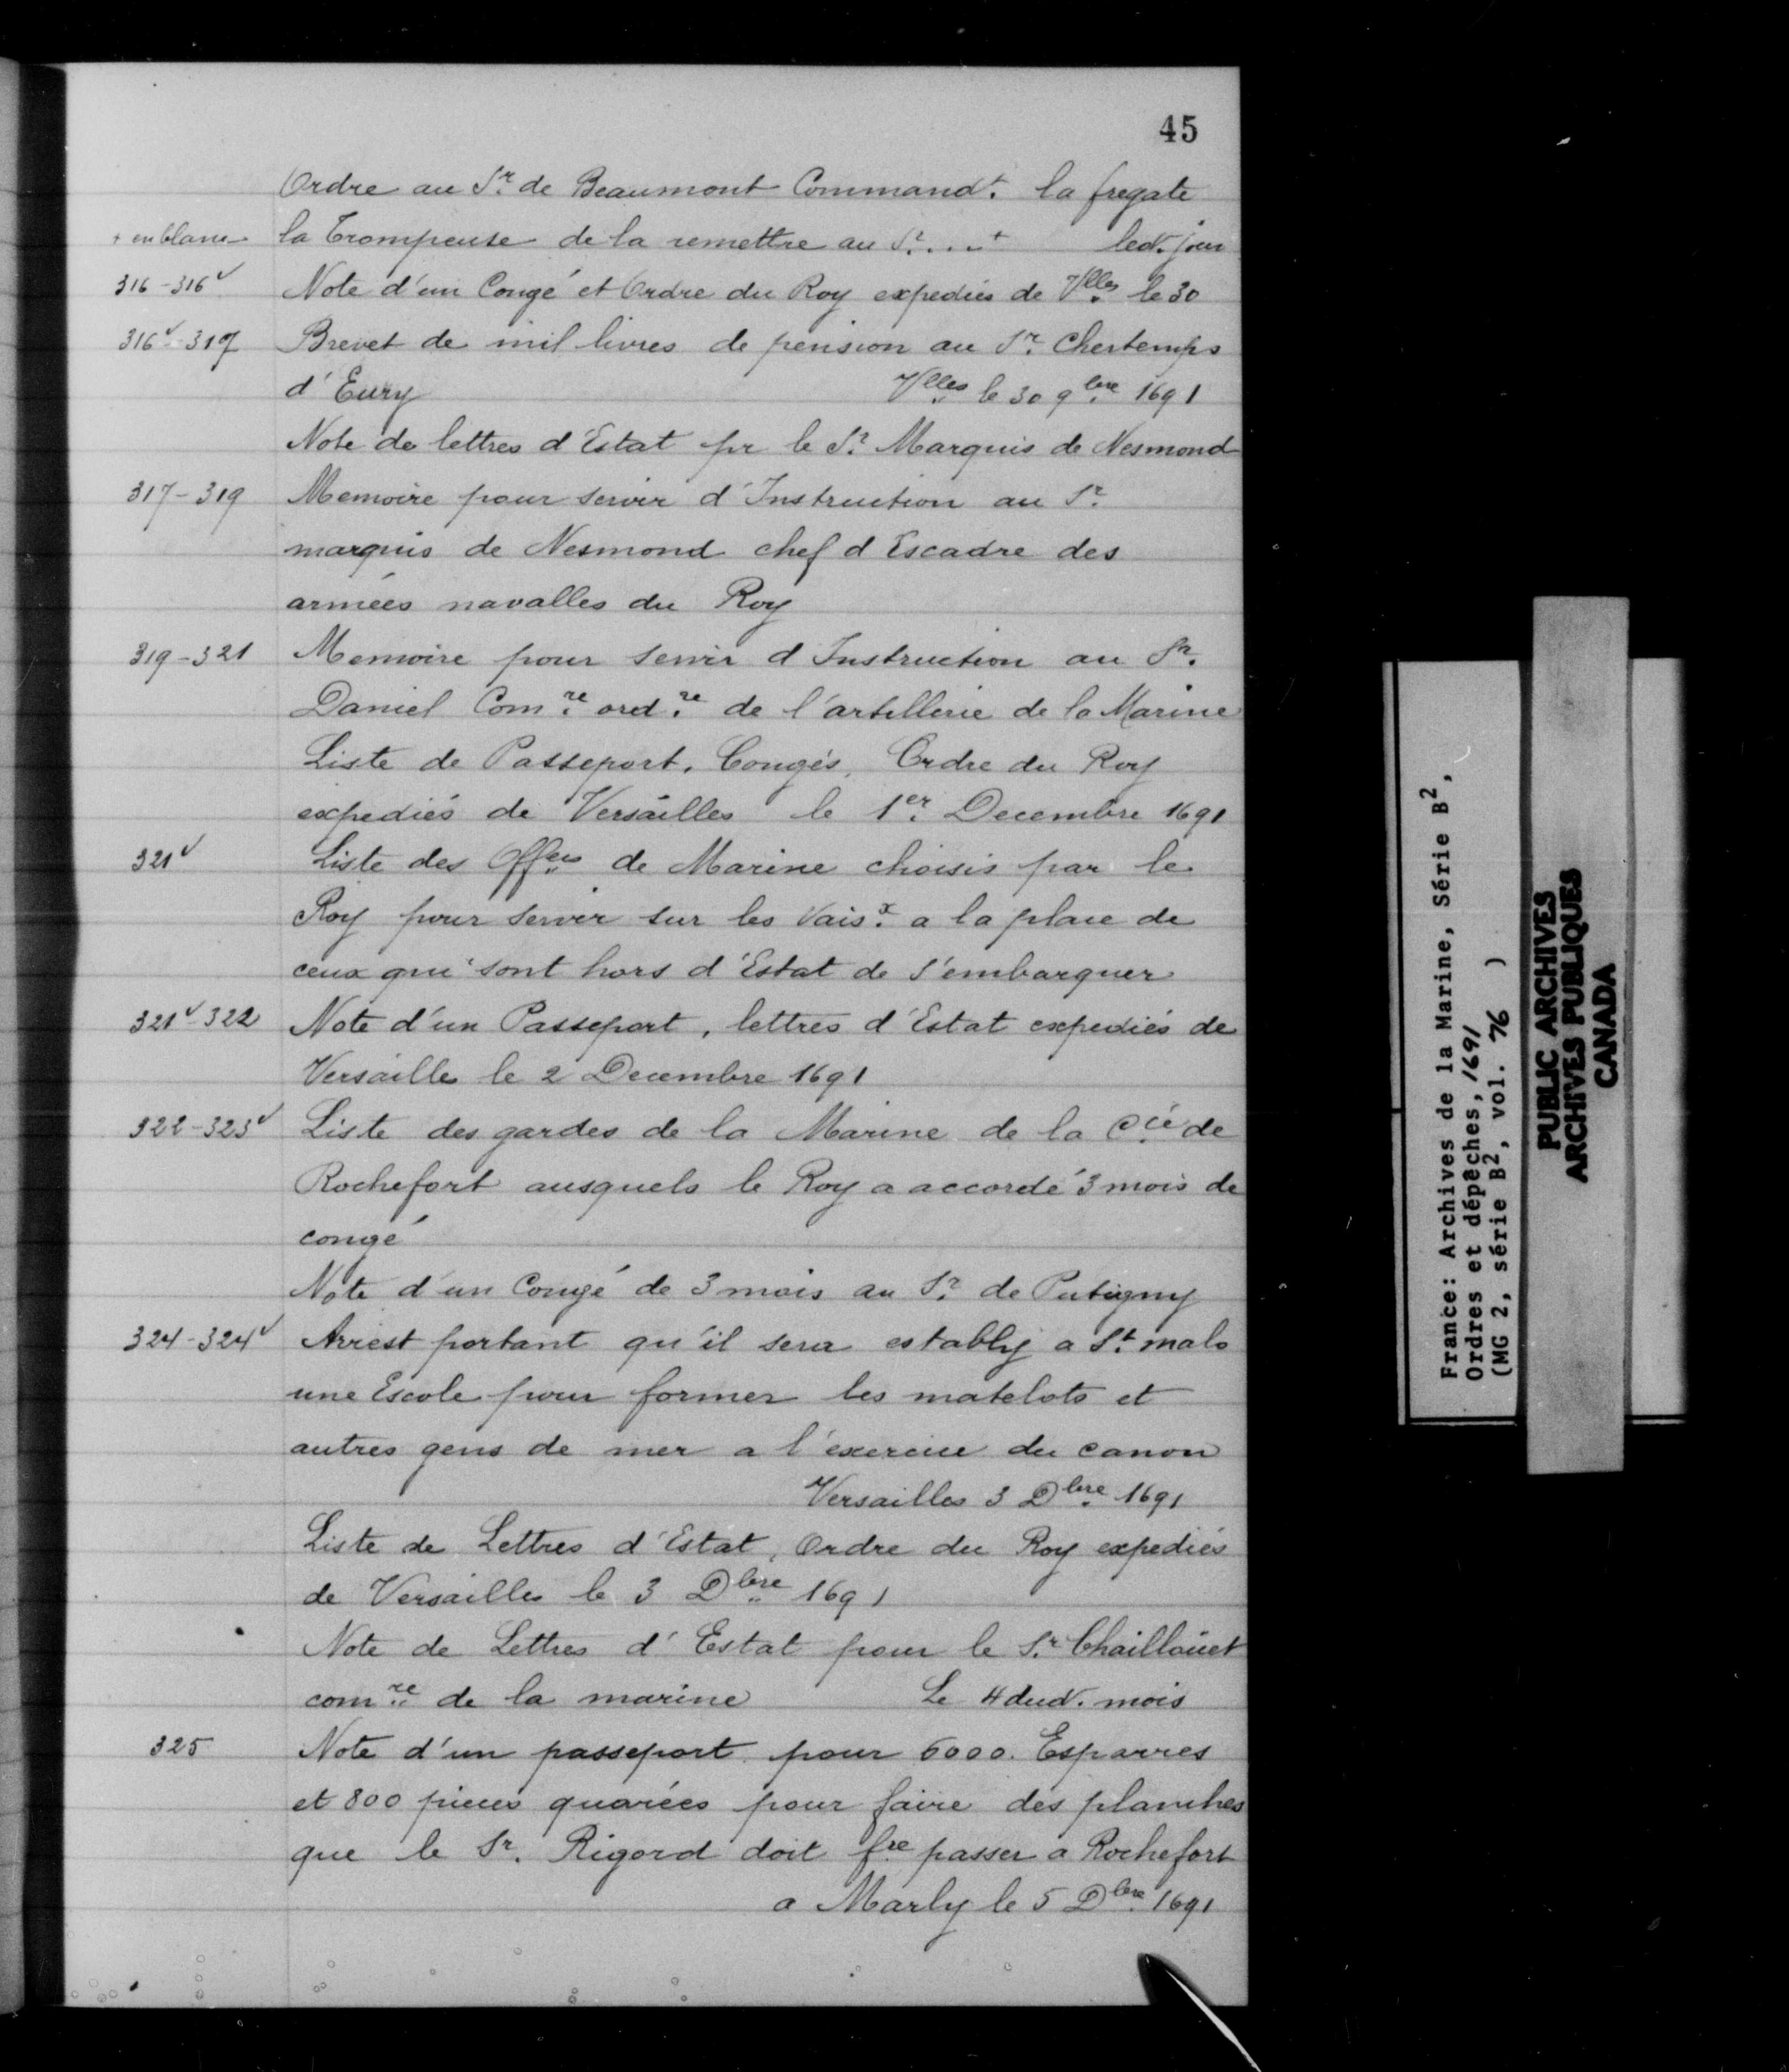 45
Ordre au Sr. de Beaumont Command.t la fregate
+ en blanc la Trompeuse de la remettre au Sr. ...+ led. jour
316-316v Note d'un Congé et Ordre du Roy expediés de Vlles le 30
316v-317 Brevet de mil livres de pension au Sr. Chertemps
d'Eury Vlles le 30 9bre 1691
Note de lettres d'Estat pr le Sr. Marquis de Nesmond
317-319 Memoire pour servir d'Instruction au Sr.
marquis de Nesmond chef d'Escadre des
armées navalles du Roy
319-321 Memoire pour servir d'Instruction au Sr.
Daniel Comre ordre de l'artillerie de la Marine
Liste de Passeport, Congés, Ordre du Roy
expediés de Versailles le 1er Decembre 1691
321v Liste des Offers de Marine choisis par le
Roy pour servir sur les Vaisx a la place de
ceux qui sont hors d'Estat de s'embarquer
321v-322 Note d'un Passeport, lettres d'Estat expediés de
Versailles le 2 Decembre 1691
322-323v Liste des gardes de la Marine de la Cie de
Rochefort ausquels le Roy a accordé 3 mois de
congé
Note d'un Congé de 3 mois au Sr. de Putigny
324-324v Arrest portant qu'il sera establý a St. malo
une Escole pour former les matelots et
autres gens de mer a l'exercice du canon
Versailles 3 Dbre 1691
Liste de Lettres d'Estat, Ordre du Roy expediés
de Versailles le 3 Dbre 1691
Note de Lettres d'Estat pour le Sr. Chaillouet
comre de la marine Le 4 dud. mois
325 Note d'un passeport pour 6000 Esparres
et 800 pieces quarées pour faire des planches
que le Sr. Rigord doit fre passer a Rochefort
a Marly le 5 Dbre 1691
France: Archives de la Marine, Série B2,
Ordres et dépêches, 1691
(MG 2, série B2, vol. 76 )
PUBLIC ARCHIVES
ARCHIVES PUBLIQUES
CANADA